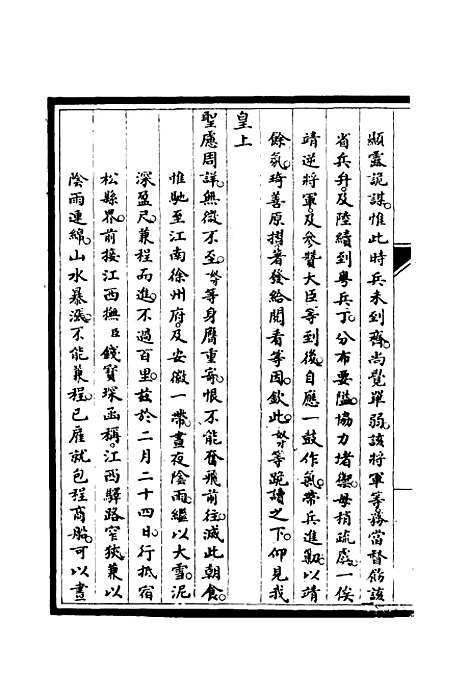 顯靈詭謀惟此時兵未到齊尚覺單弱該將軍等務當督飭該
省兵弁及陸續到粵兵丁分布要隘協力堵禦毋稍疏虞一俟
靖逆將軍及參贊大臣等到後自應一鼓作氣帶兵進勦以靖
餘氛琦善原摺著發給閱看等因欽此奴才等跪讀之下仰見我
皇上
聖慮周詳無微不至奴才等身膺重寄恨不能奮飛前往滅此朝食
惟馳至江南徐州府及安徽一帶晝夜陰雨繼以大雪泥
深盈尺兼程而進不過百里茲於二月二十四日行抵宿
松縣界前接江西撫臣錢寶琛函稱江西驛路窄狹兼以
陰雨連綿山水暴漲不能兼程已雇就包程商船可以晝